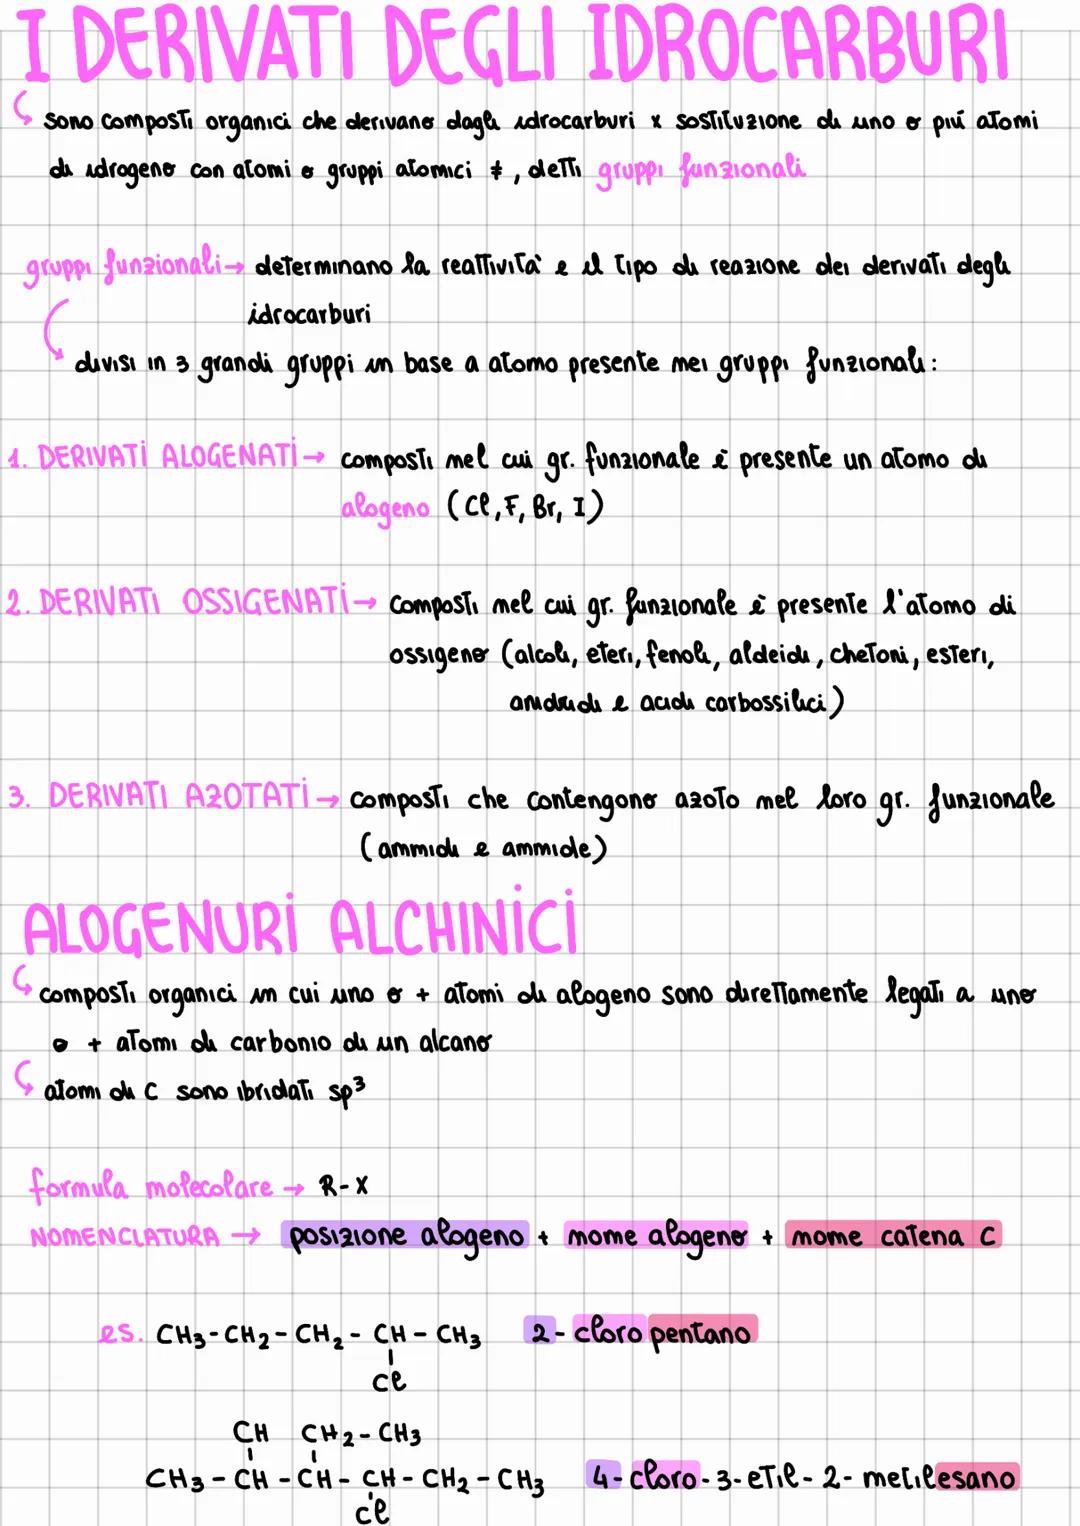 I DERIVATI DEGLI IDROCARBURI
sono composti organici che derivano dagli idrocarburi x sostituzione di uno o più atomi
di idrogeno con atomi o gruppi atomici ≠, detti gruppi funzionali
gruppi funzionali → determinano la reattività e il tipo di reazione dei derivati degli
idrocarburi
divisi in 3 grandi gruppi in base a atomo presente nei gruppi funzionali:
1. DERIVATI ALOGENATI → composti nel cui gr. funzionale è presente un atomo di
alogeno (Cl, F, Br, I)
2. DERIVATI OSSIGENATI → composti nel cui gr. funzionale è presente l'atomo di
ossigeno (alcoli, eteri, fenoli, aldeidi, chetoni, esteri,
anidridi e acidi carbossilici)
3. DERIVATI AZOTATI → composti che contengono azoto nel loro gr. funzionale
(ammidi e ammide)
ALOGENURI ALCHINICI
composti organici in cui uno o + atomi di alogeno sono direttamente legati a uno
o + atomi di carbonio di un alcano
atomi di C sono ibridati sp³
formula molecolare → R-X
NOMENCLATURA → posizione alogeno + nome alogeno + nome catena C
es. CH3-CH2-CH2-CH-CH3 2-cloropentano
Cl
CH CH2-CH3
CH3-CH-CH-CH-CH2-CH3 4-cloro-3-etil-2-metilesano
Cl